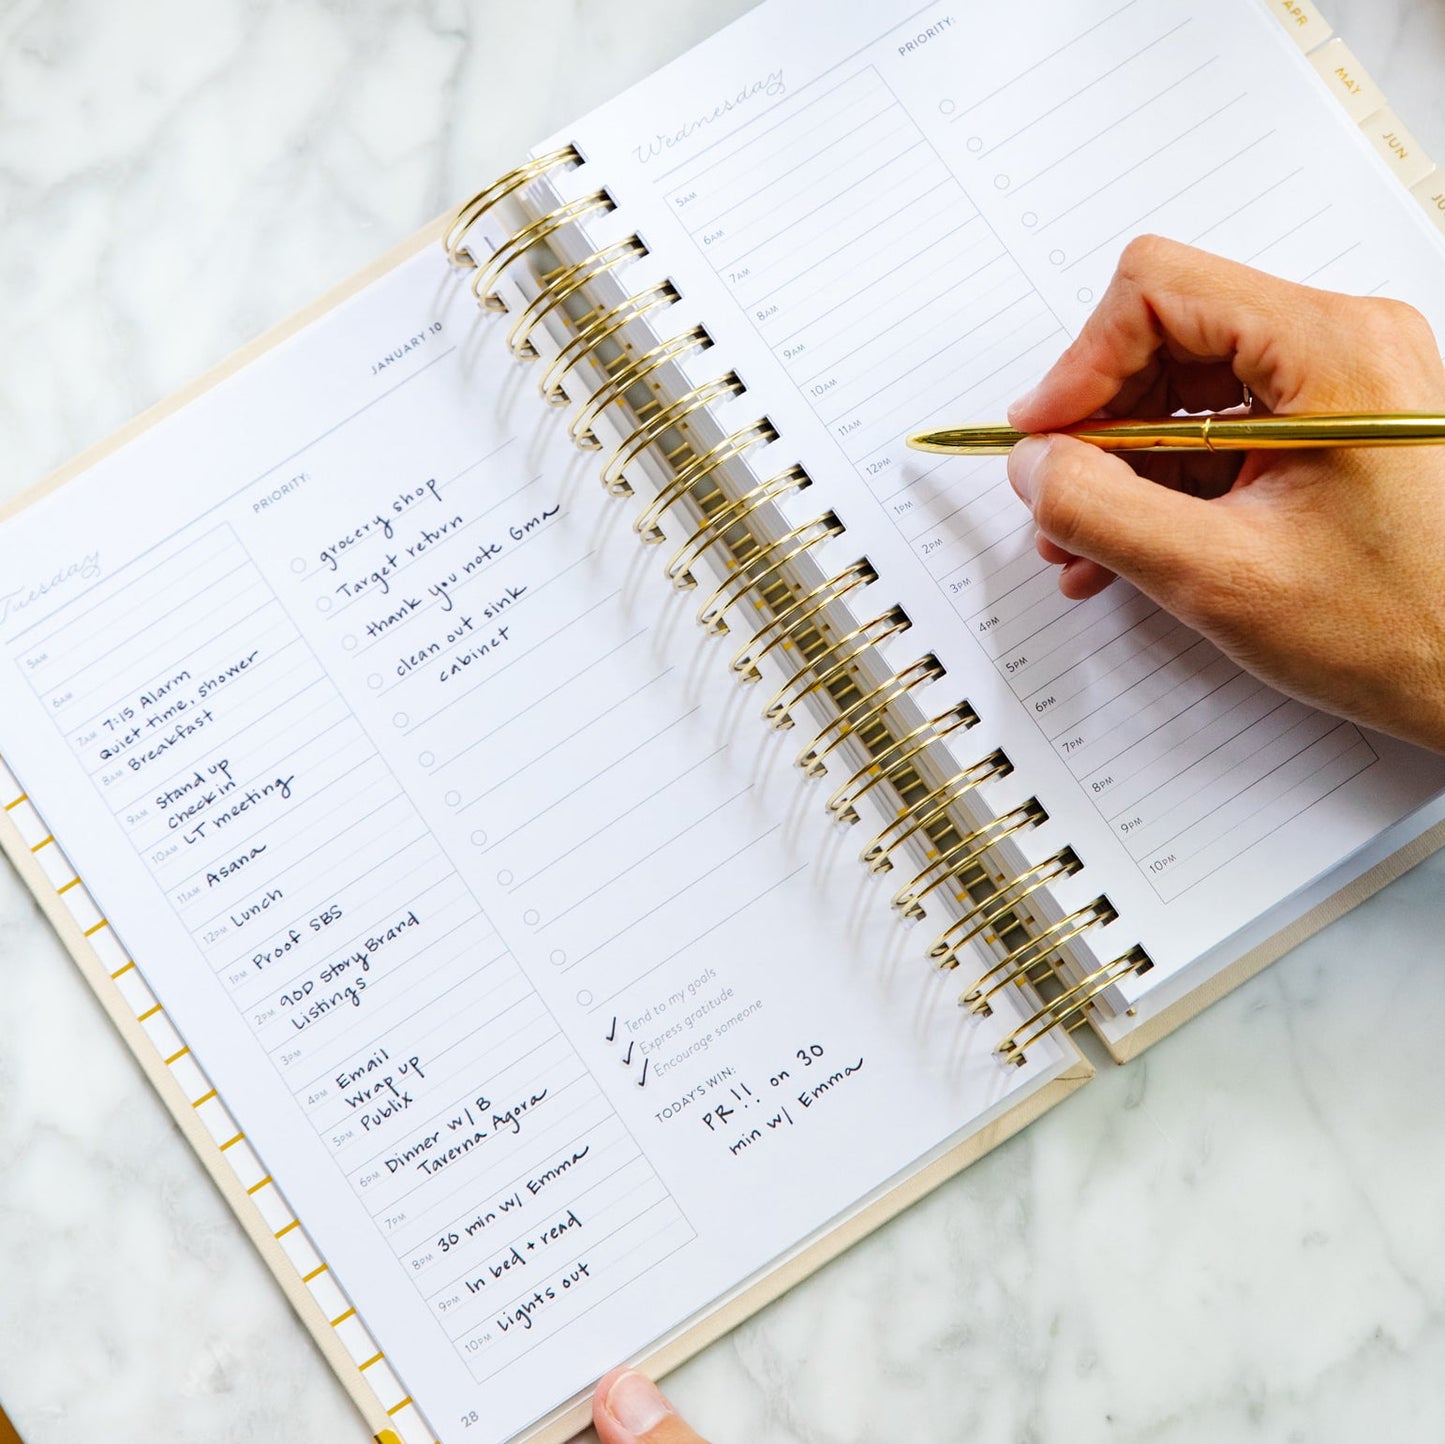 Tuesday
JANUARY 10
5AM
6AM
7:15 Alarm
7AM Quiet time, shower
8AM Breakfast
9AM Stand up
check in
10AM LT meeting
11AM Asana
12PM Lunch
1PM Proof SBS
2PM 90D StoryBrand
Listings
3PM
4PM Email
Wrap up
5PM Publix
6PM Dinner w/ B
Taverna Agora
7PM
8PM 30 min w/ Emma
9PM In bed + read
10PM Lights out
28
PRIORITY:
grocery shop
Target return
thank you note Gma
clean out sink
cabinet
Tend to my goals
Express gratitude
Encourage someone
TODAY'S WIN:
PR!! on 30
min w/ Emma
Wednesday
5AM
6AM
7AM
8AM
9AM
10AM
11AM
12PM
1PM
2PM
3PM
4PM
5PM
6PM
7PM
8PM
9PM
10PM
PRIORITY:
APR
MAY
JUN